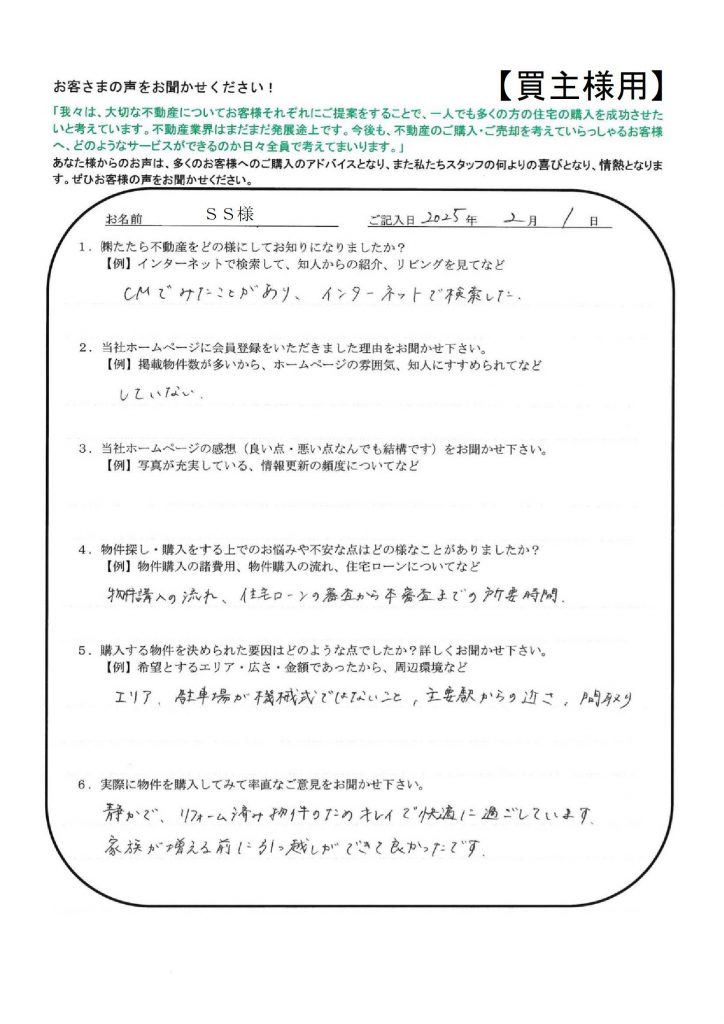 お客さまの声をお聞かせください！
【買主様用】
「我々は、大切な不動産についてお客様それぞれにご提案をすることで、一人でも多くの方の住宅の購入を成功させた
いと考えています。不動産業界はまだまだ発展途上です。今後も、不動産のご購入・ご売却を考えていらっしゃるお客様
へ、どのようなサービスができるのか日々全員で考えてまいります。」
あなた様からのお声は、多くのお客様へのご購入のアドバイスとなり、また私たちスタッフの何よりの喜びとなり、情熱となりま
す。ぜひお客様の声をお聞かせください。
お名前 ＳＳ様 ご記入日 2025 年 2 月 1 日
１．㈱たたら不動産をどの様にしてお知りになりましたか？
【例】インターネットで検索して、知人からの紹介、リビングを見てなど
CMでみたことがあり、インターネットで検索した.
２．当社ホームページに会員登録をいただきました理由をお聞かせ下さい。
【例】掲載物件数が多いから、ホームページの雰囲気、知人にすすめられてなど
していない.
３．当社ホームページの感想（良い点・悪い点なんでも結構です）をお聞かせ下さい。
【例】写真が充実している、情報更新の頻度についてなど
４．物件探し・購入をする上でのお悩みや不安な点はどの様なことがありましたか？
【例】物件購入の諸費用、物件購入の流れ、住宅ローンについてなど
物件購入の流れ、住宅ローンの審査から本審査までの所要時間.
５．購入する物件を決められた要因はどのような点でしたか？詳しくお聞かせ下さい。
【例】希望とするエリア・広さ・金額であったから、周辺環境など
エリア、駐車場が機械式ではないこと, 主要駅からの近さ, 間取り
６．実際に物件を購入してみて率直なご意見をお聞かせ下さい。
静かで、リフォーム済み物件のためキレイで快適に過ごしています.
家族が増える前に引っ越しができて良かったです.